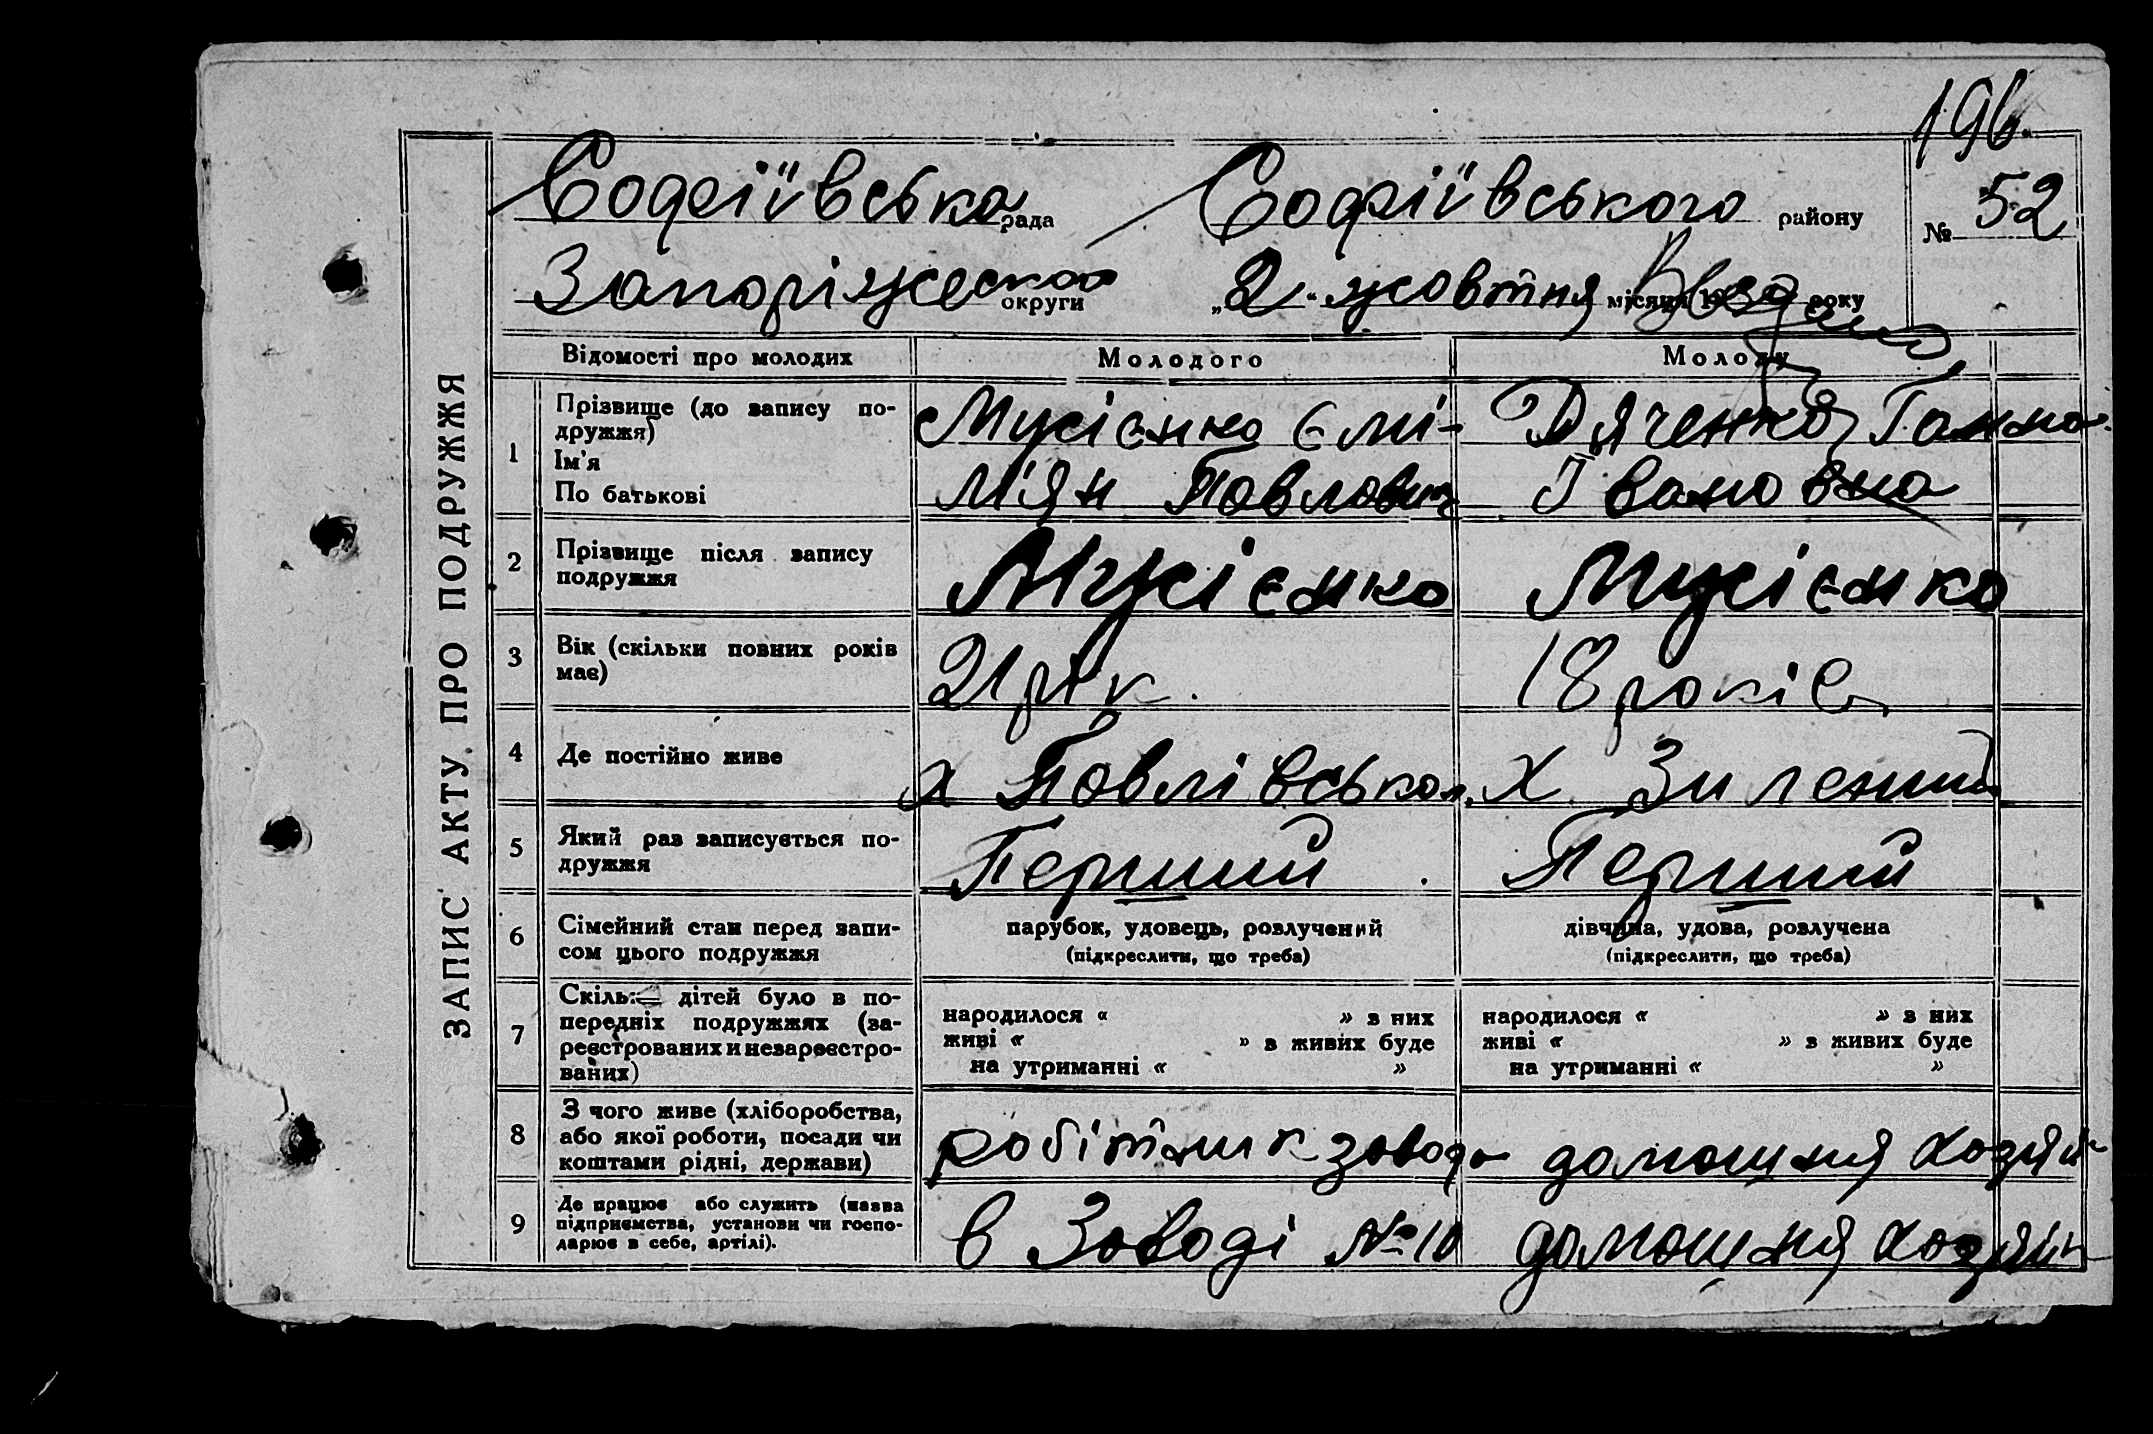 196.
Софіївська рада Софіївського району № 52
Запоріжської округи „2“ жовтня місяця 19 року
Видано
ЗАПИС АКТУ ПРО ПОДРУЖЖЯ
Відомості про молодих Молодого Молоду
1 Прізвище (до запису по-
дружжя)
Ім'я
По батькові
Мусієнко Емі-
льян Павлович
Дяченко Ганна
Івановна
2 Прізвище після запису
подружжя
Мусієнко Мусієнко
3 Вік (скільки повних років
має)
21 рік. 18 років
4 Де постійно живе х Павлівськ х. Зилений
5 Який раз записується по-
дружжя
Перший Перший
6 Сімейний стан перед запи-
сом цього подружжя
парубок, удовець, розлучений
(підкреслити, що треба)
дівчина, удова, розлучена
(підкреслити, що треба)
7 Скільки дітей було в по-
передніх подружжях (за-
реєстрованих и незареєстро-
ваних)
народилося « » з них
живі « » з живих буде
на утриманні « »
народилося « » з них
живі « » з живих буде
на утриманні « »
8 З чого живе (хліборобства,
або якої роботи, посади чи
коштами рідні, держави)
робітник завода домашня хозяйк
9 Де працює або служить (назва
підприємства, установи чи госпо-
дарює в себе, артілі).
в Заводі №10 домашня хозяйк